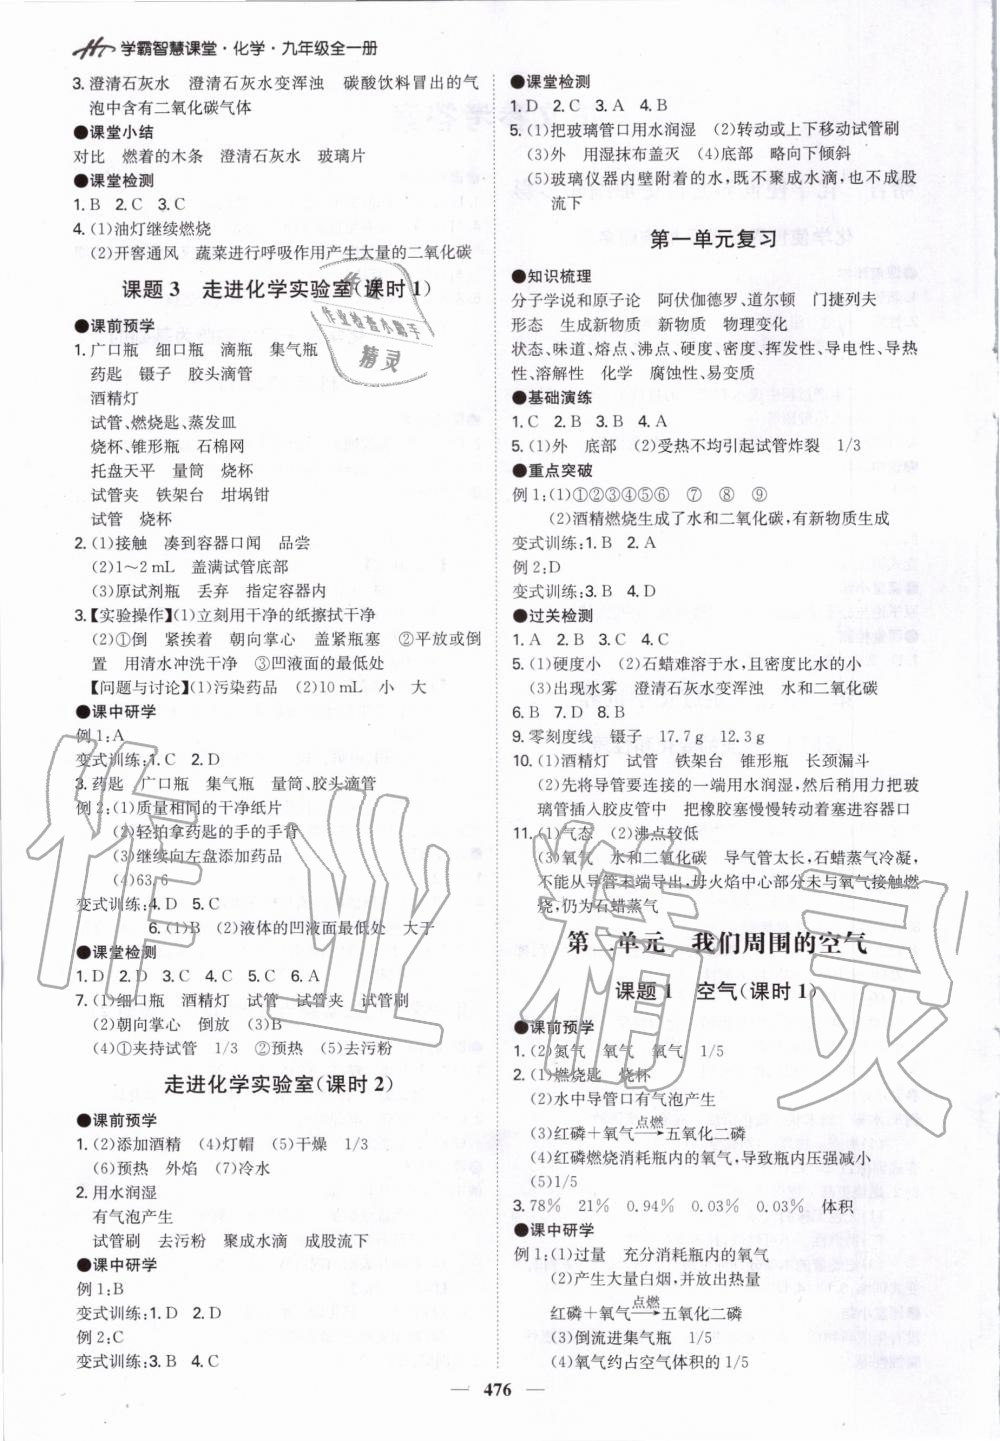 学霸智慧课堂·化学·九年级全一册
3.澄清石灰水 澄清石灰水变浑浊 碳酸饮料冒出的气
泡中含有二氧化碳气体
●课堂小结
对比 燃着的木条 澄清石灰水 玻璃片
●课堂检测
1.B 2.C 3.C
4.(1)油灯继续燃烧
(2)开窖通风 蔬菜进行呼吸作用产生大量的二氧化碳
课题3 走进化学实验室(课时1)
●课前预学
1.广口瓶 细口瓶 滴瓶 集气瓶
药匙 镊子 胶头滴管
酒精灯
试管、燃烧匙、蒸发皿
烧杯、锥形瓶 石棉网
托盘天平 量筒 烧杯
试管夹 铁架台 坩埚钳
试管 烧杯
2.(1)接触 凑到容器口闻 品尝
(2)1～2 mL 盖满试管底部
(3)原试剂瓶 丢弃 指定容器内
3.【实验操作】(1)立刻用干净的纸擦拭干净
(2)①倒 紧挨着 朝向掌心 盖紧瓶塞 ②平放或倒
置 用清水冲洗干净 ③凹液面的最低处
【问题与讨论】(1)污染药品 (2)10 mL 小 大
●课中研学
例1:A
变式训练:1.C 2.D
3.药匙 广口瓶 集气瓶 量筒、胶头滴管
例2:(1)质量相同的干净纸片
(2)轻拍拿药匙的手的手背
(3)继续向左盘添加药品
(4)63.6
变式训练:4.D 5.C
6.(1)B (2)液体的凹液面最低处 大于
●课堂检测
1.D 2.D 3.C 4.C 5.C 6.D
7.(1)细口瓶 酒精灯 试管 试管夹 试管刷
(2)朝向掌心 倒放 (3)B
(4)①夹持试管 1/3 ②预热 (5)去污粉
走进化学实验室(课时2)
●课前预学
1.(2)添加酒精 (4)灯帽 (5)干燥 1/3
(6)预热 外焰 (7)冷水
2.用水润湿
有气泡产生
试管刷 去污粉 聚成水滴 成股流下
●课中研学
例1:B
变式训练:1.D 2.D
例2:C
变式训练:3.B 4.C
●课堂检测
1.D 2.C 3.A 4.B
5.(1)把玻璃管口用水润湿 (2)转动或上下移动试管刷
(3)外 用湿抹布盖灭 (4)底部 略向下倾斜
(5)玻璃仪器内壁附着的水,既不聚成水滴,也不成股
流下
第一单元复习
●知识梳理
分子学说和原子论 阿伏伽德罗、道尔顿 门捷列夫
形态 生成新物质 新物质 物理变化
状态、味道、熔点、沸点、硬度、密度、挥发性、导电性、导热
性、溶解性 化学 腐蚀性、易变质
●基础演练
1.C 2.B 3.B 4.A
5.(1)外 底部 (2)受热不均引起试管炸裂 1/3
●重点突破
例1:(1)①②③④⑤⑥ ⑦ ⑧ ⑨
(2)酒精燃烧生成了水和二氧化碳,有新物质生成
变式训练:1.B 2.A
例2:D
变式训练:3.B 4.D
●过关检测
1.A 2.B 3.C 4.C
5.(1)硬度小 (2)石蜡难溶于水,且密度比水的小
(3)出现水雾 澄清石灰水变浑浊 水和二氧化碳
6.B 7.D 8.B
9.零刻度线 镊子 17.7 g 12.3 g
10.(1)酒精灯 试管 铁架台 锥形瓶 长颈漏斗
(2)先将导管要连接的一端用水润湿,然后稍用力把玻
璃管插入胶皮管中 把橡胶塞慢慢转动着塞进容器口
11.(1)气态 (2)沸点较低
(3)氧气 水和二氧化碳 导气管太长,石蜡蒸气冷凝,
不能从导管末端导出,母火焰中心部分未与氧气接触燃
烧,仍为石蜡蒸气
第二单元 我们周围的空气
课题1 空气(课时1)
●课前预学
1.(2)氮气 氧气 氧气 1/5
2.(1)燃烧匙 烧杯
(2)水中导管口有气泡产生
(3)红磷+氧气 点燃→ 五氧化二磷
(4)红磷燃烧消耗瓶内的氧气,导致瓶内压强减小
(5)1/5
3.78% 21% 0.94% 0.03% 0.03% 体积
●课中研学
例1:(1)过量 充分消耗瓶内的氧气
(2)产生大量白烟,并放出热量
红磷+氧气 点燃→ 五氧化二磷
(3)倒流进集气瓶 1/5
(4)氧气约占空气体积的1/5
476
作业检查小助手
精灵
作业精灵